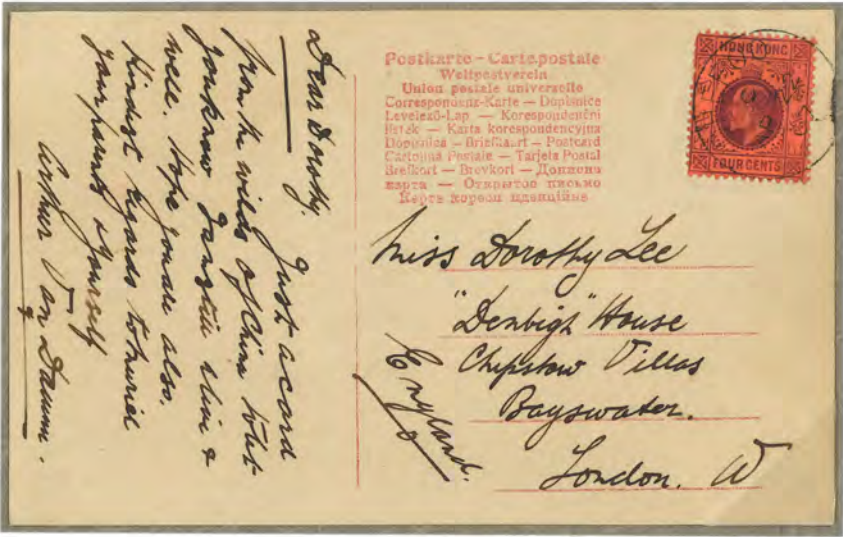 Dear Dorothy. Just a card
from the wilds of China to let
you know I am still alive &
well. Hope you are also.
Kindest regards to Muriel
your parents & yourself
Arthur Van Damm.
Postkarte – Carte postale
Weltpostverein
Union postale universelle
Correspondenz-Karte – Dopisnice
Levelező-Lap – Korespondenční
lístek – Karta korespondencyjna
Dopisnica – Briefkaart – Postcard
Cartolina Postale – Tarjeta Postal
Brefkort – Brevkort –
– Открытое письмо
HONG KONG
FOUR CENTS
Miss Dorothy Lee
"Denbigh" House
Chepstow Villas
Bayswater.
London. W
England.